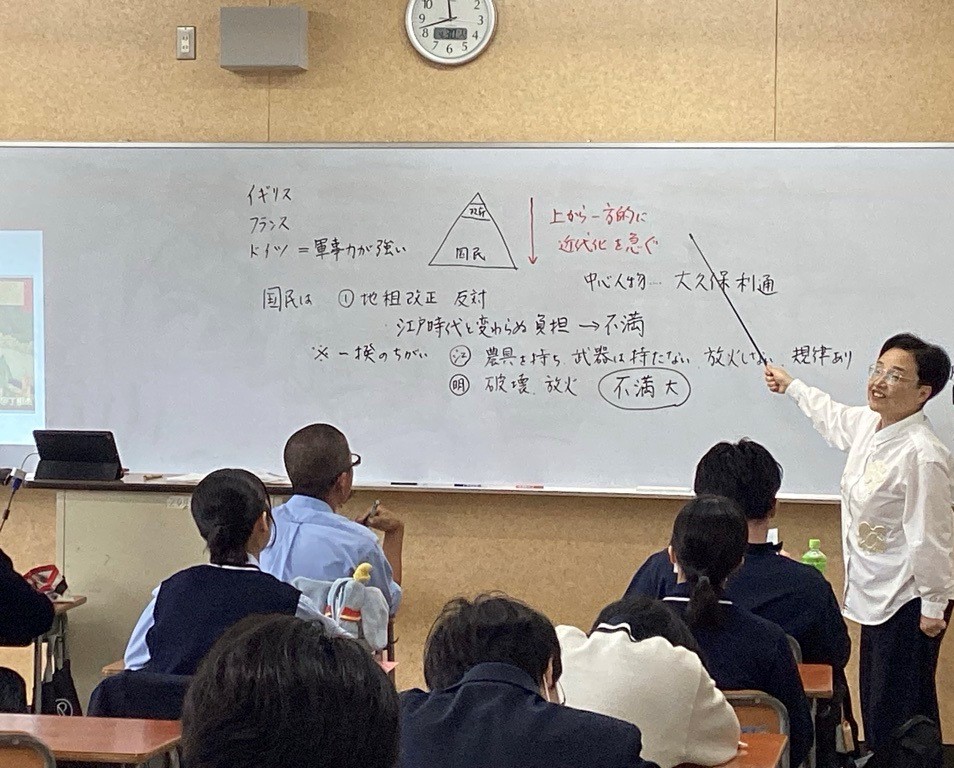 イギリス
フランス
ドイツ = 軍事力が強い
政府
国民
上から一方的に
近代化を急ぐ
中心人物… 大久保利通
国民は ① 地租改正 反対
・江戸時代と変わらぬ負担 → 不満
※ 一揆のちがい ㋓ 農具を持ち、武器は持たない、放火しない、規律あり
㊔ 破壊、放火 不満大
10 2
9 3
8 4
7 6 5